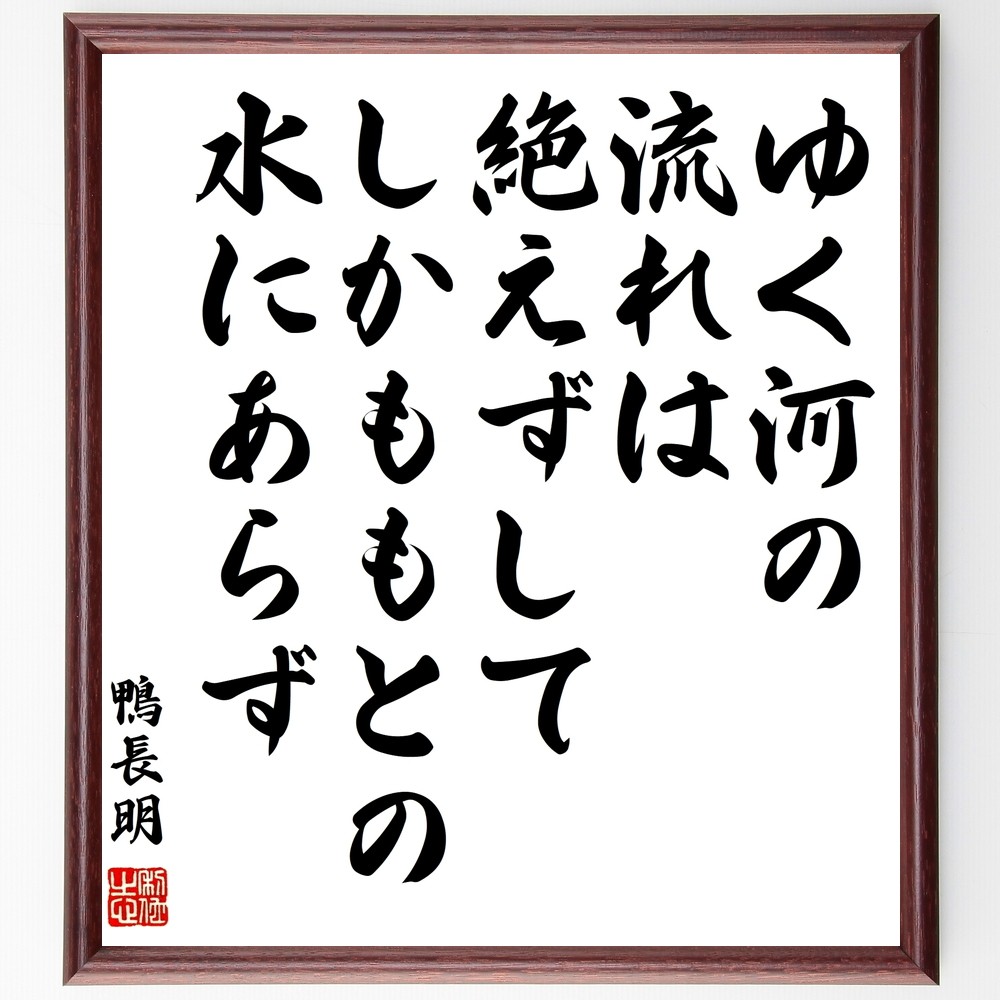 ゆく河の
流れは
絶えずして
しかももとの
水にあらず
鴨長明